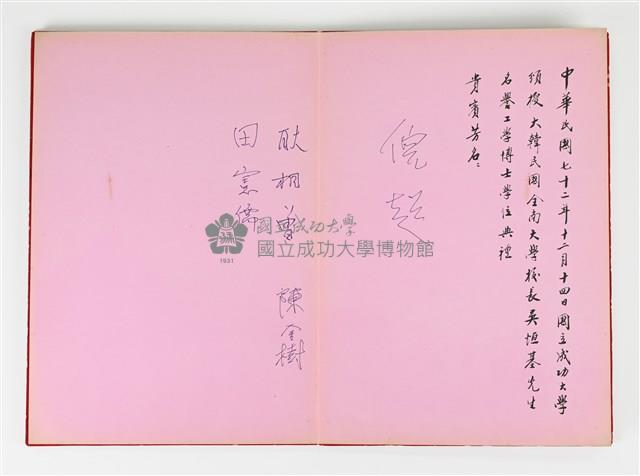 中華民國七十二年十二月十四日國立成功大學
頒授大韓民國全南大學校長吳恒基先生
名譽工學博士學位典禮
貴賓芳名：
倪超
耿相曾
田憲儒
陳全樹
國立成功大學
國立成功大學博物館
1931